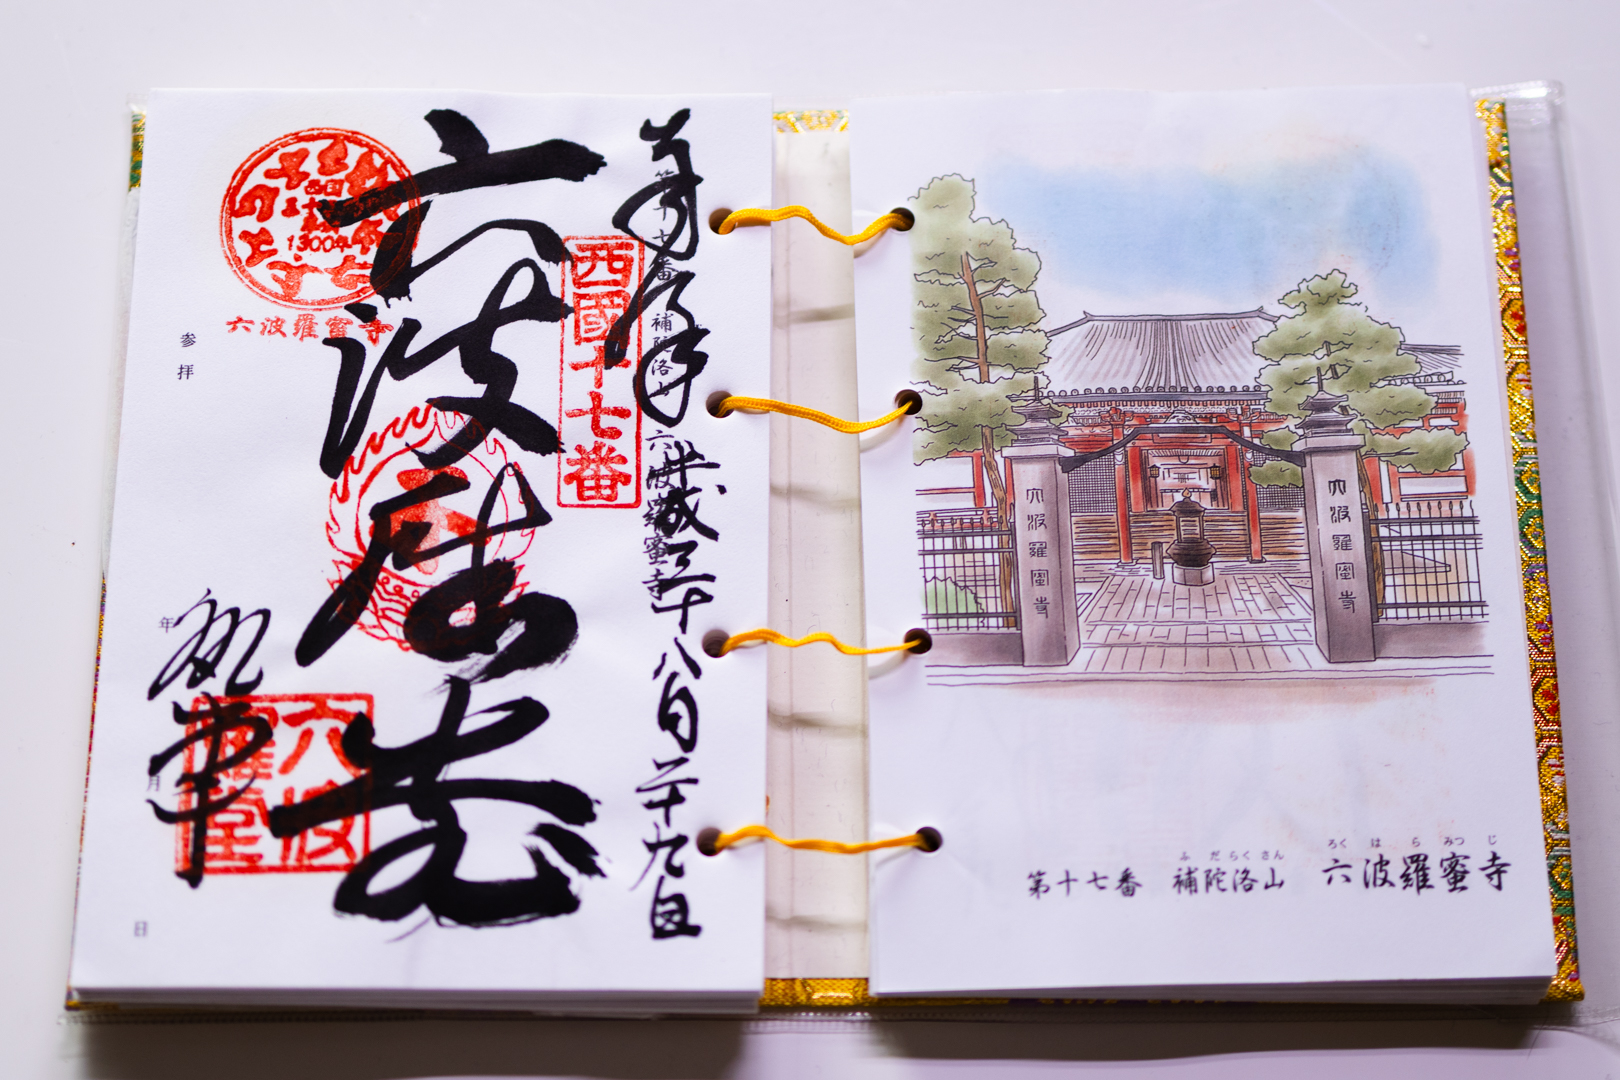 奉拝
平成三十
八月
二十九日
第十七番 補陀洛山 六波羅蜜寺
西國十七番
六波羅堂
1300年
六波羅蜜寺
六波羅堂
参拝
年
月
日
六波羅蜜寺
六波羅蜜寺
第十七番 補陀洛山 六波羅蜜寺
ふ だ らく さん ろく は ら みつ じ